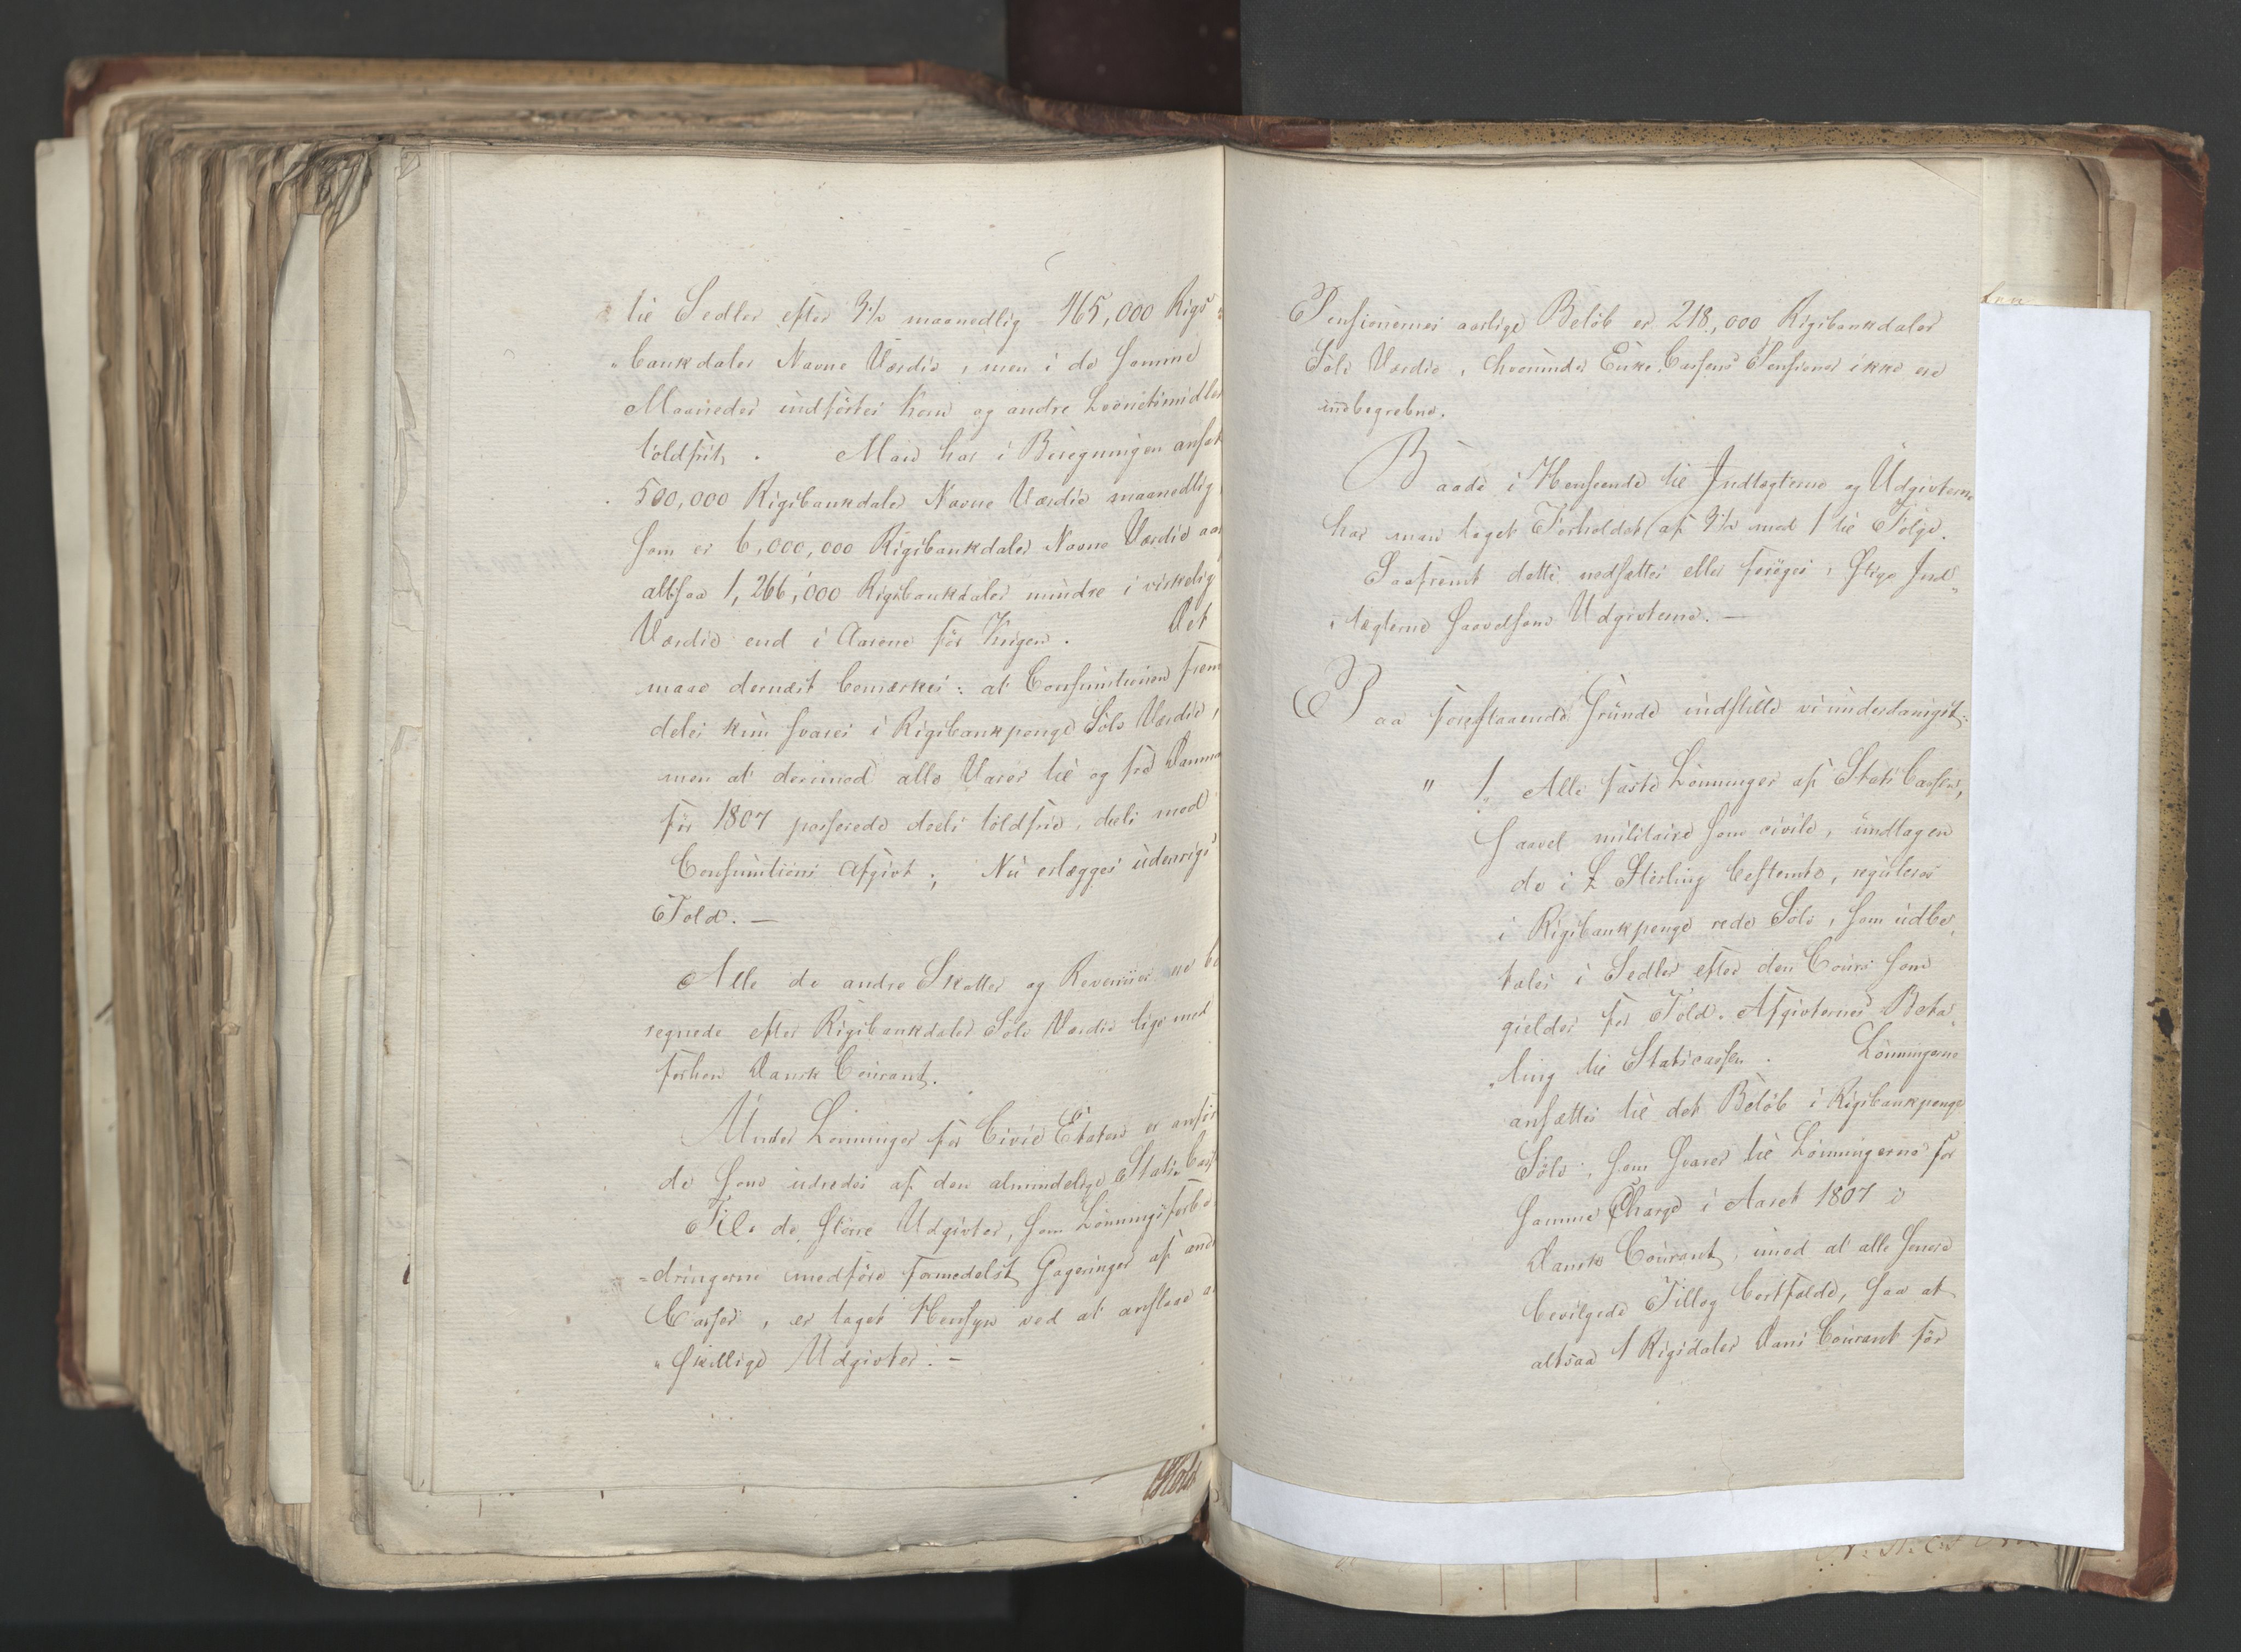 til Sedler efter 3½ maanedlig 465,000 Rigs
bankdaler Navne Værdie, men i de samme
Maaneder indførtes Korn og andre Levnetsmidler
toldfrit. Man har i Beregningen ansat
500,000 Rigsbankdaler Navne Værdie maanedlig
som er 6,000,000 Rigsbankdaler Navne Værdie aar
altsaa 1,266,000 Rigsbankdaler mindre i virkelig
Værdie end i Aarene før Krigen. Det
maae dernæst bemærkes: at Consumtionen frem
deles kun svares i Rigsbankpenge Sølv Værdie,
men at derimod alle Varer til og fra Danma
før 1807 passerede deels toldfrie, deels mod
Consumtions Afgivt; Nu erlægges udenrigs
Told. —
Alle de andre Skatter og Revenuer ere be
regnede efter Rigsbankdaler Sølv Værdie lige med
forhen Dansk Courant.
Under Lønninger for Civil Etaten er anfør
de som udredes af den almindelige Stats Cass
Til de større Udgivter, som Lønningsforbe
=dringerne medføre formedelst Gageringer af andr
Casser, er taget Hensyn ved at anslaae a
"skillige Udgivter. —
Pensionernes aarlige Beløb er 218,000 Rigsbankdaler
Sølv Værdie, hvorunder Enke Cassens Pensioner ikke ere
indbegrebne.
Baade i Henseende til Indtægterne og Udgivterne
har man taget Forholdet af 3½ mod 1 til Følge.
Saafremt dette nedsættes eller forøges, stige Ind
tægterne saavelsom Udgivterne. —
Paa forestaaende Grunde indstille vi underdanigst:
" 1. Alle faste Lønninger af Stats Cassen,
saavel militaire som civile, undtagen
de i £ Sterling bestemte, reguleres
i Rigsbankpenge rede Sølv, som udbe,
tales i Sedler efter den Cours som
gielder for Told-Afgivternes Beta,
"ling til Statscassen. Lønningerne
ansættes til det Beløb i Rigsbankpenge
Sølv, som svarer til Lønningerne for
samme Charge i Aaret 1807 i
Dansk Courant, imod at alle senere
bevilgede Tillæg bortfalde, saa at
altsaa 1 Rigsdaler Dansk Courant før